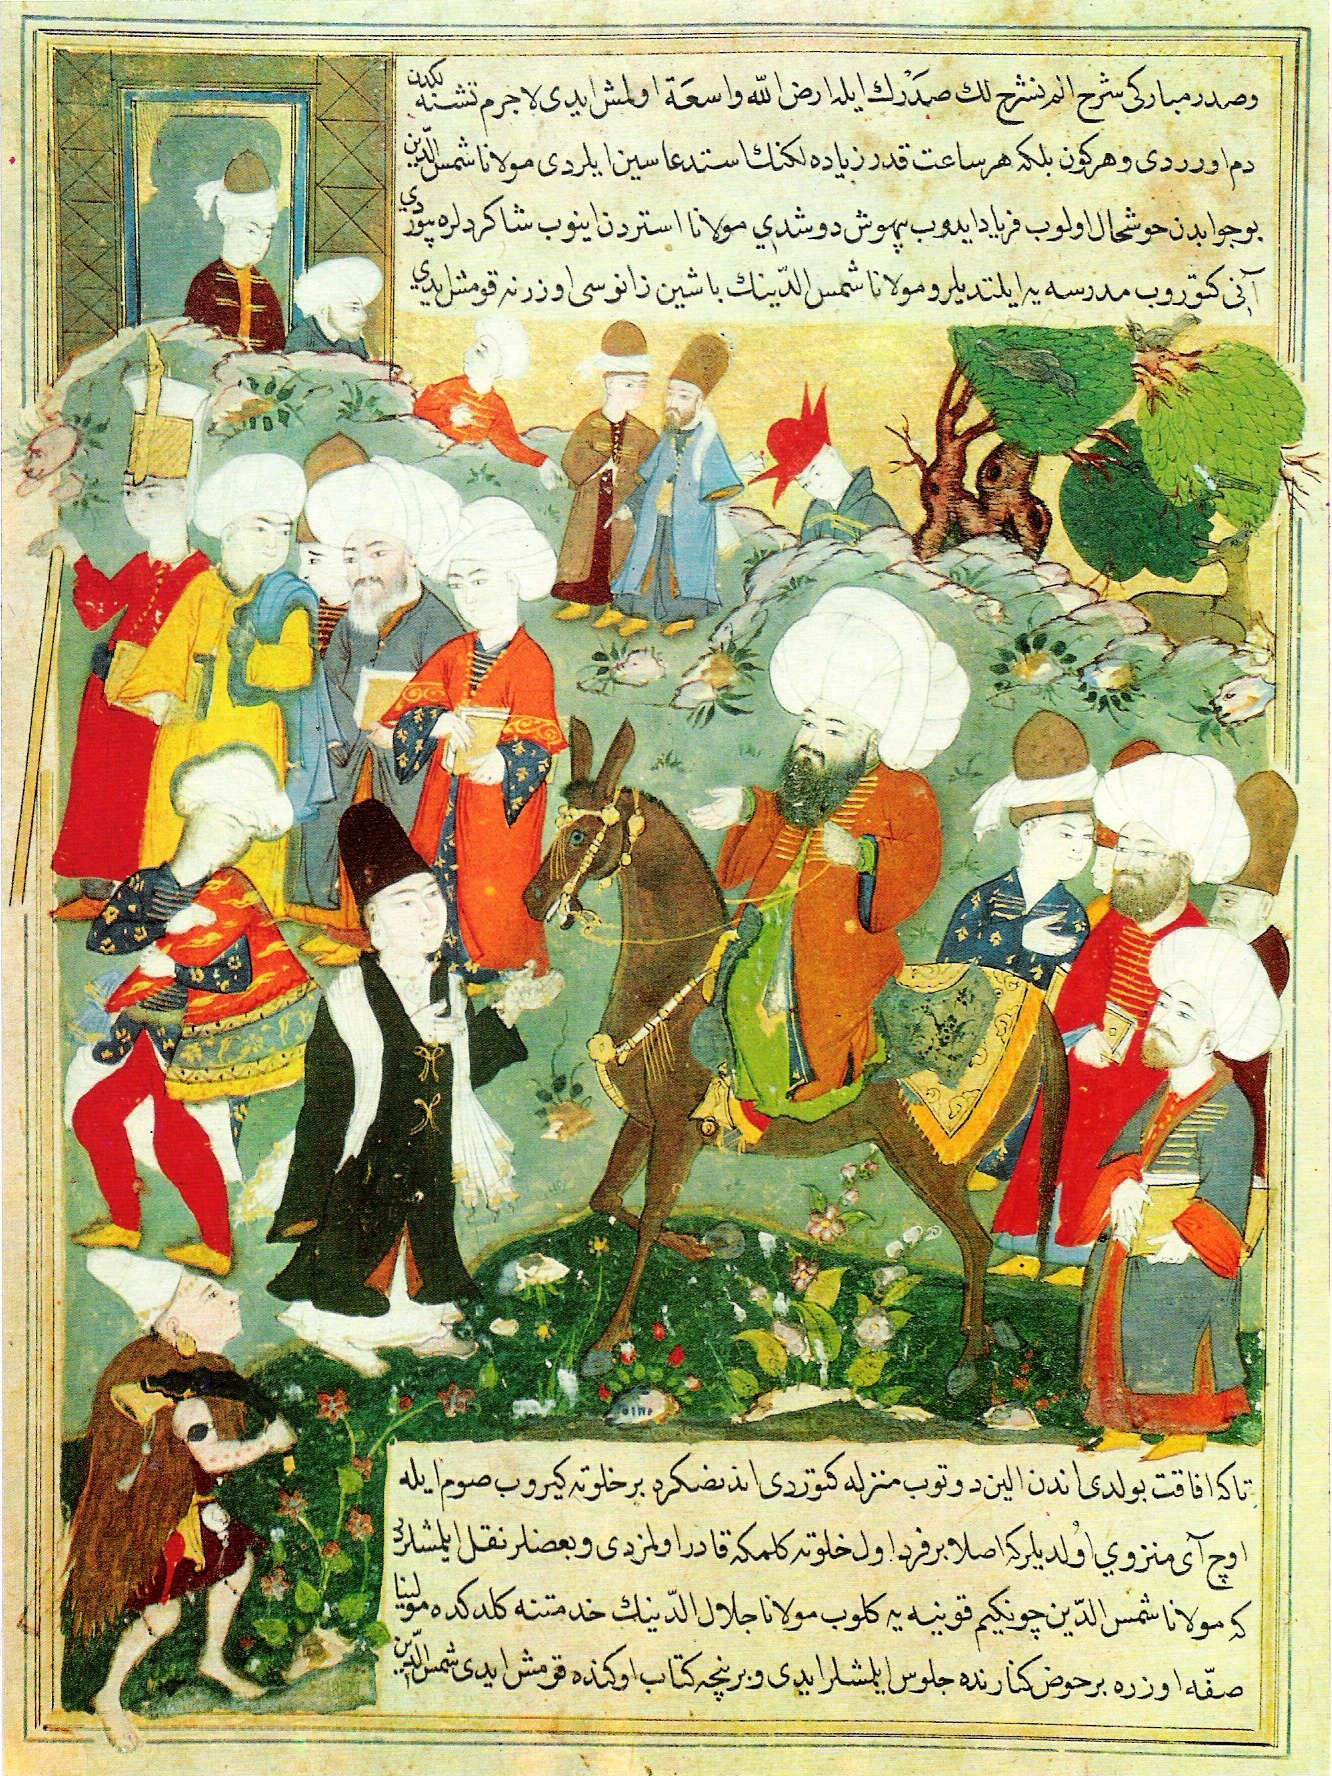 وصدر مباركى شرح الم نشرح لك صَدْرك ايله ارض الله واسعَة اولمش ايدى لاجرم تشنه لكدن
دم اورردى وهركون بلكه هر ساعت قدر زياده لكنك استدعاسين ايلردى مولانا شمس الدّين
بو جوابدن خوشحال اولوب فرياد ايدوب بيهوش دوشدي مولانا استردن اينوب شاكردلره بيوردي
آنى كتوروب مدرسه يه ايلتديلر و مولانا شمس الدّينك باشين زانوسى اوزرنه قومشلايدي
تاكه افاقت بولدى اندن الين دوتوب منزله كتوردى اندنصكره بر خلوته كيروب صوم ايله
اوچ آى منزوي اولديلركه اصلا بر فرد اول خلوته كلمكه قادر اولمزدى و بعضلر نقل ايلمشلر
كه مولانا شمس الدّين چونكيم قونيه يه كلوب مولانا جلال الدّينك خدمتنه كلدكده مولينا
صفّه اوزره بر حوض كنارنده جلوس ايلمشلر ايدى و بر نيچه كتاب اوكنده قومش ايدى شمس الدّين